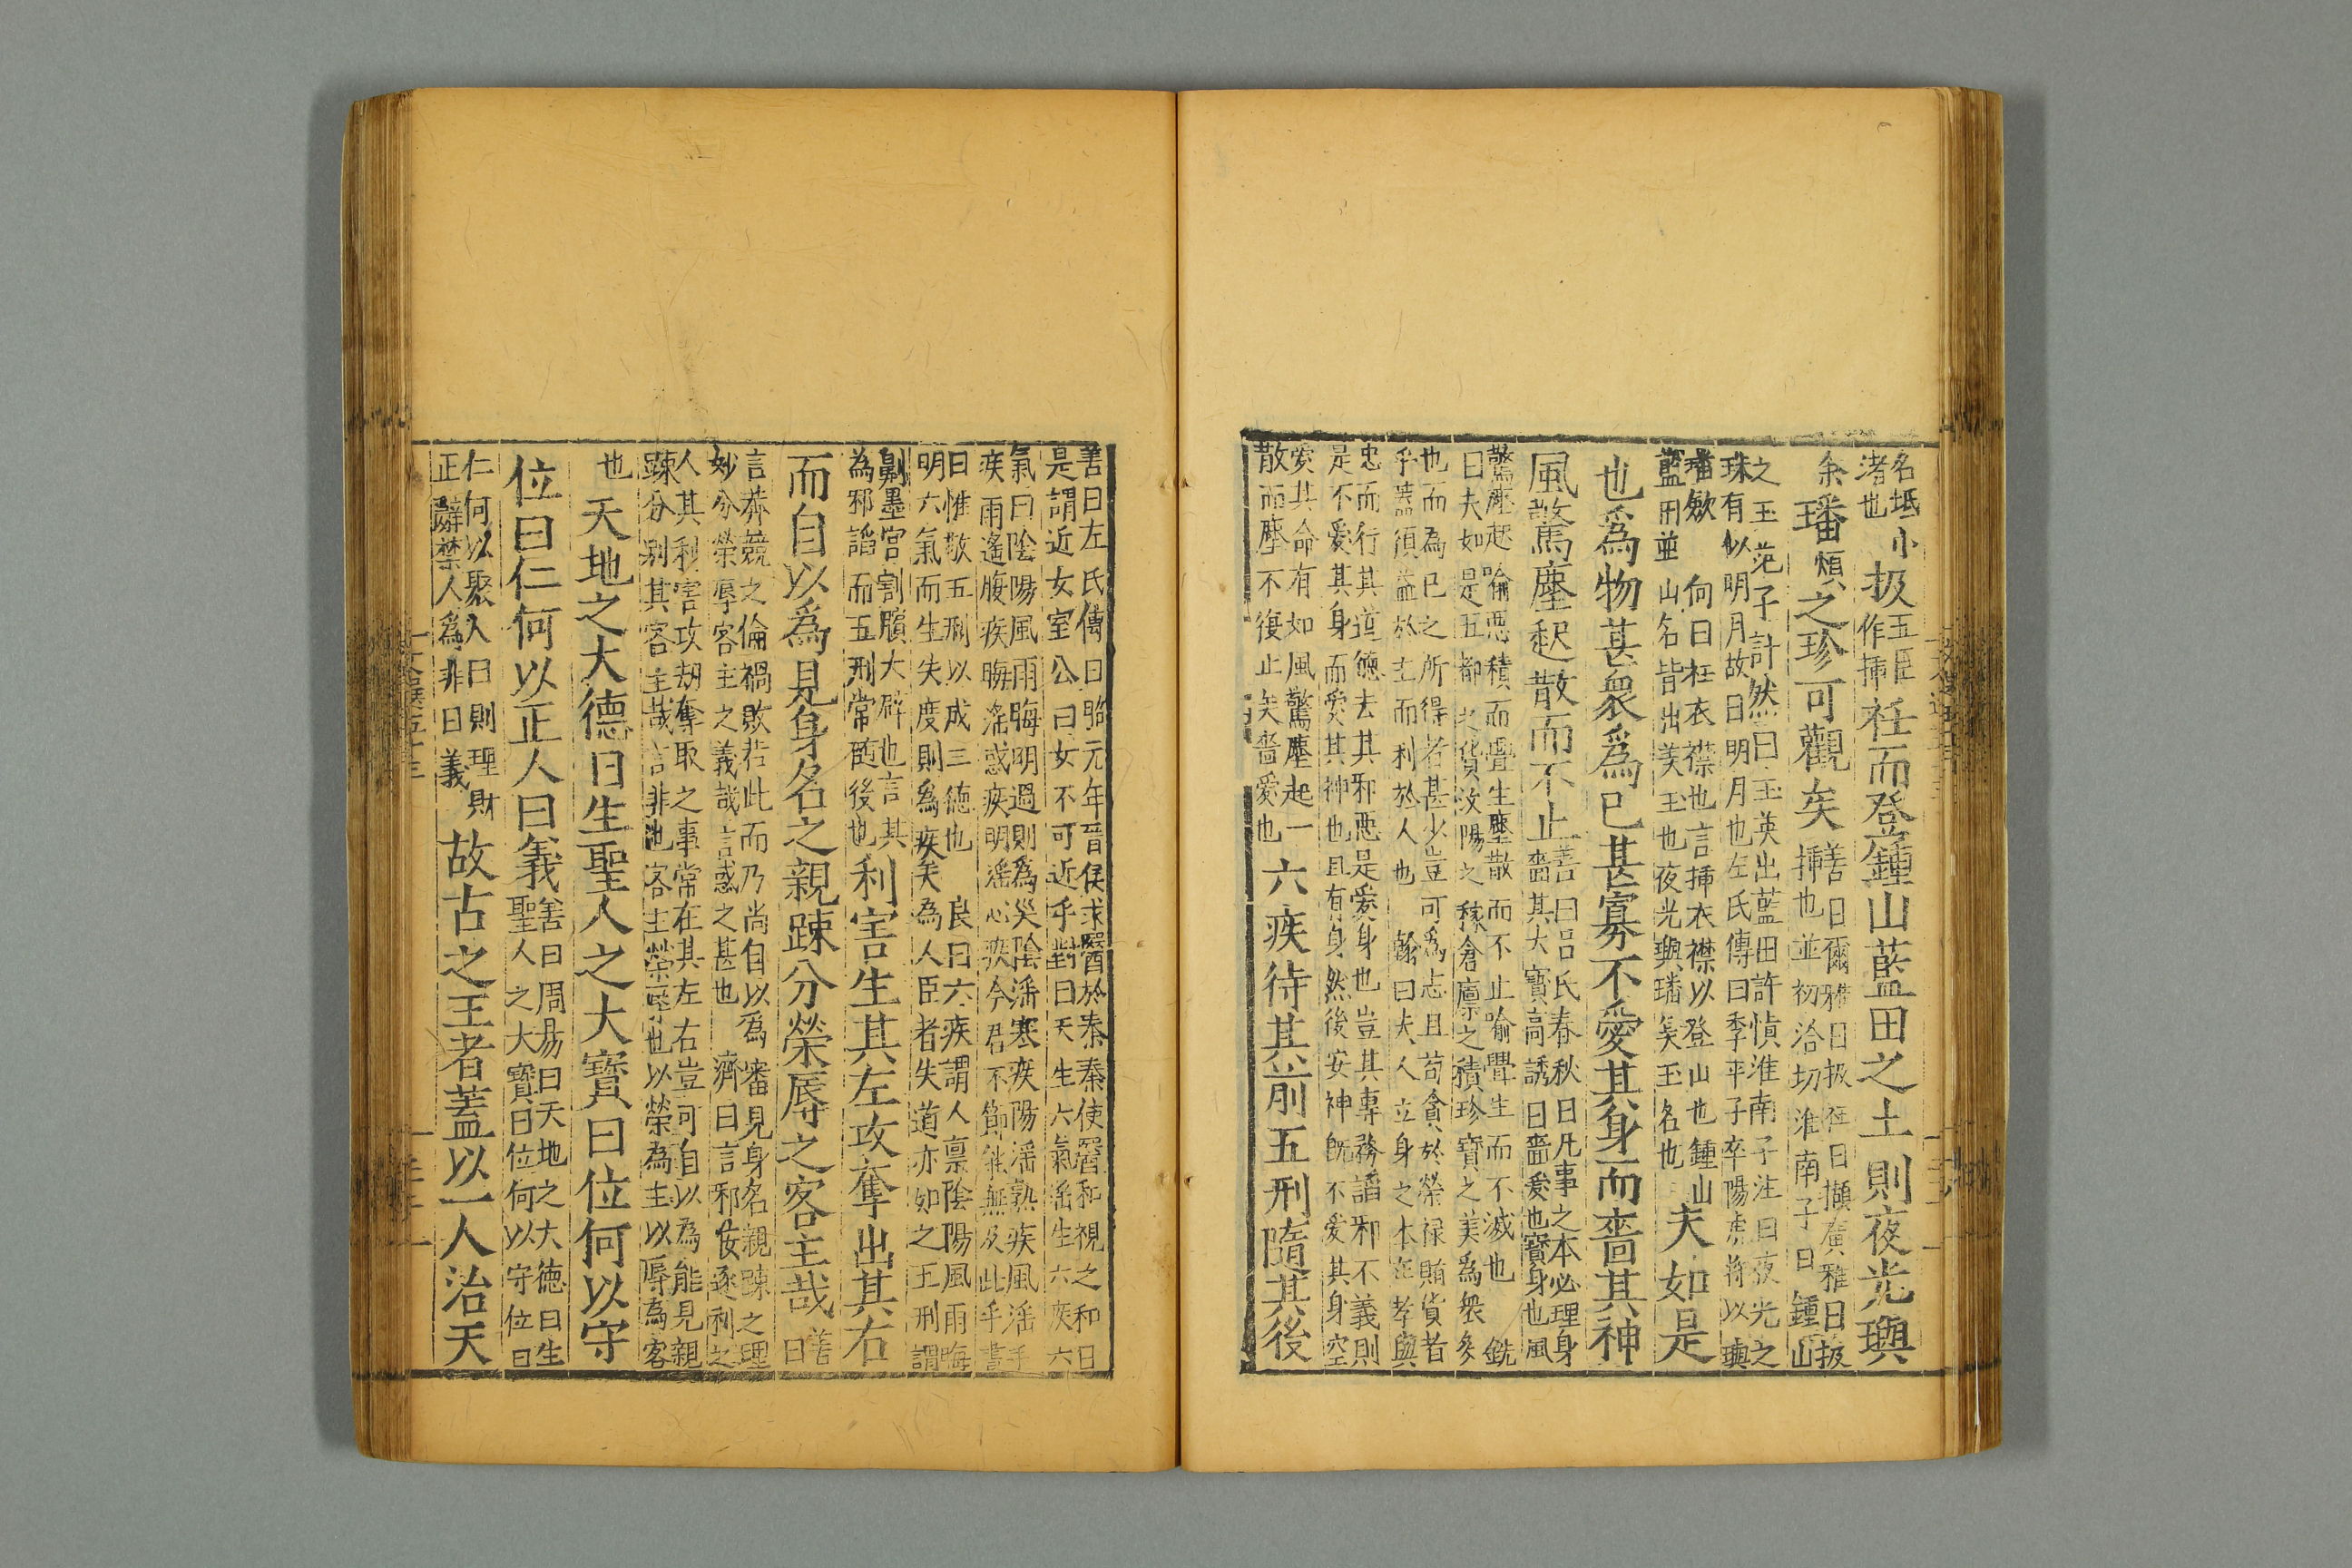 名坻小渚也扱五臣作挿衽而登鍾山藍田之土則夜光璵
余璠煩之珍可觀矣善曰爾雅曰扱衽曰擷廣雅曰扱挿也並初洽切淮南子曰鍾山
之玉范子計然曰玉英出藍田許慎淮南子注曰夜光之珠有似明月故曰明月也左氏傳曰季平子卒陽虎将以璵
璠斂 向曰衽衣襟也言挿衣襟以登山也鍾山藍田並山名皆出美玉也夜光璵璠美玉名也夫如是
也爲物甚衆爲已甚寡不愛其身而嗇其神
風驚塵起散而不止善曰吕氏春秋曰凡事之本必理身嗇其大寳高誘曰嗇愛也寳身也風
驚塵起喻惡積而舋生塵散而不止喻舋生而不滅也 銑曰夫如是五都之貨汶陽之稼倉廪之積珍寳之美爲衆多
也而為已之所得者甚少豈可爲志且苟貪於榮禄賄貨者乎蓋須益於主而利於人也 翰曰夫人立身之本在孝與
忠而行其道德去其邪惡是愛身也豈其專務謟邪不義則是不愛其身而愛其神也且有身然後安神旣不愛其身空
愛其命有如風驚塵起一散而塵不復止矣嗇愛也六疾待其前五刑隨其後
善曰左氏傳曰昭元年晉侯求醫於秦秦使醫和視之和曰是謂近女室公曰女不可近乎對曰天生六氣滛生六疾六
氣曰陰陽風雨晦明過則爲災陰滛寒疾陽滛熱疾風滛手疾雨滛腹疾晦滛惑疾明滛心疾今君不節能無及此乎書
曰惟敬五刑以成三德也 良曰六疾謂人禀陰陽風雨晦明六氣而生失度則爲疾矣為人臣者失道亦如之五刑謂
劓墨宫割臏大辟也言其為邪謟而五刑常隨後也利害生其左攻奪出其右
而自以爲見身名之親踈分榮辱之客主哉善曰
言奔競之倫禍敗若此而乃尚自以爲審見身名親踈之理妙分榮辱客主之義哉言惑之甚也 濟曰言邪佞逐利之
人其利害攻刼奪取之事常在其左右豈可自以為能見親踈分别其客主哉言非也客主榮辱也以榮為主以辱為客
也天地之大德曰生聖人之大寳曰位何以守
位曰仁何以正人曰義善曰周易曰天地之大德曰生聖人之大寳曰位何以守位曰
仁何以聚人曰則理財正辭禁人爲非曰義故古之王者蓋以一人治天